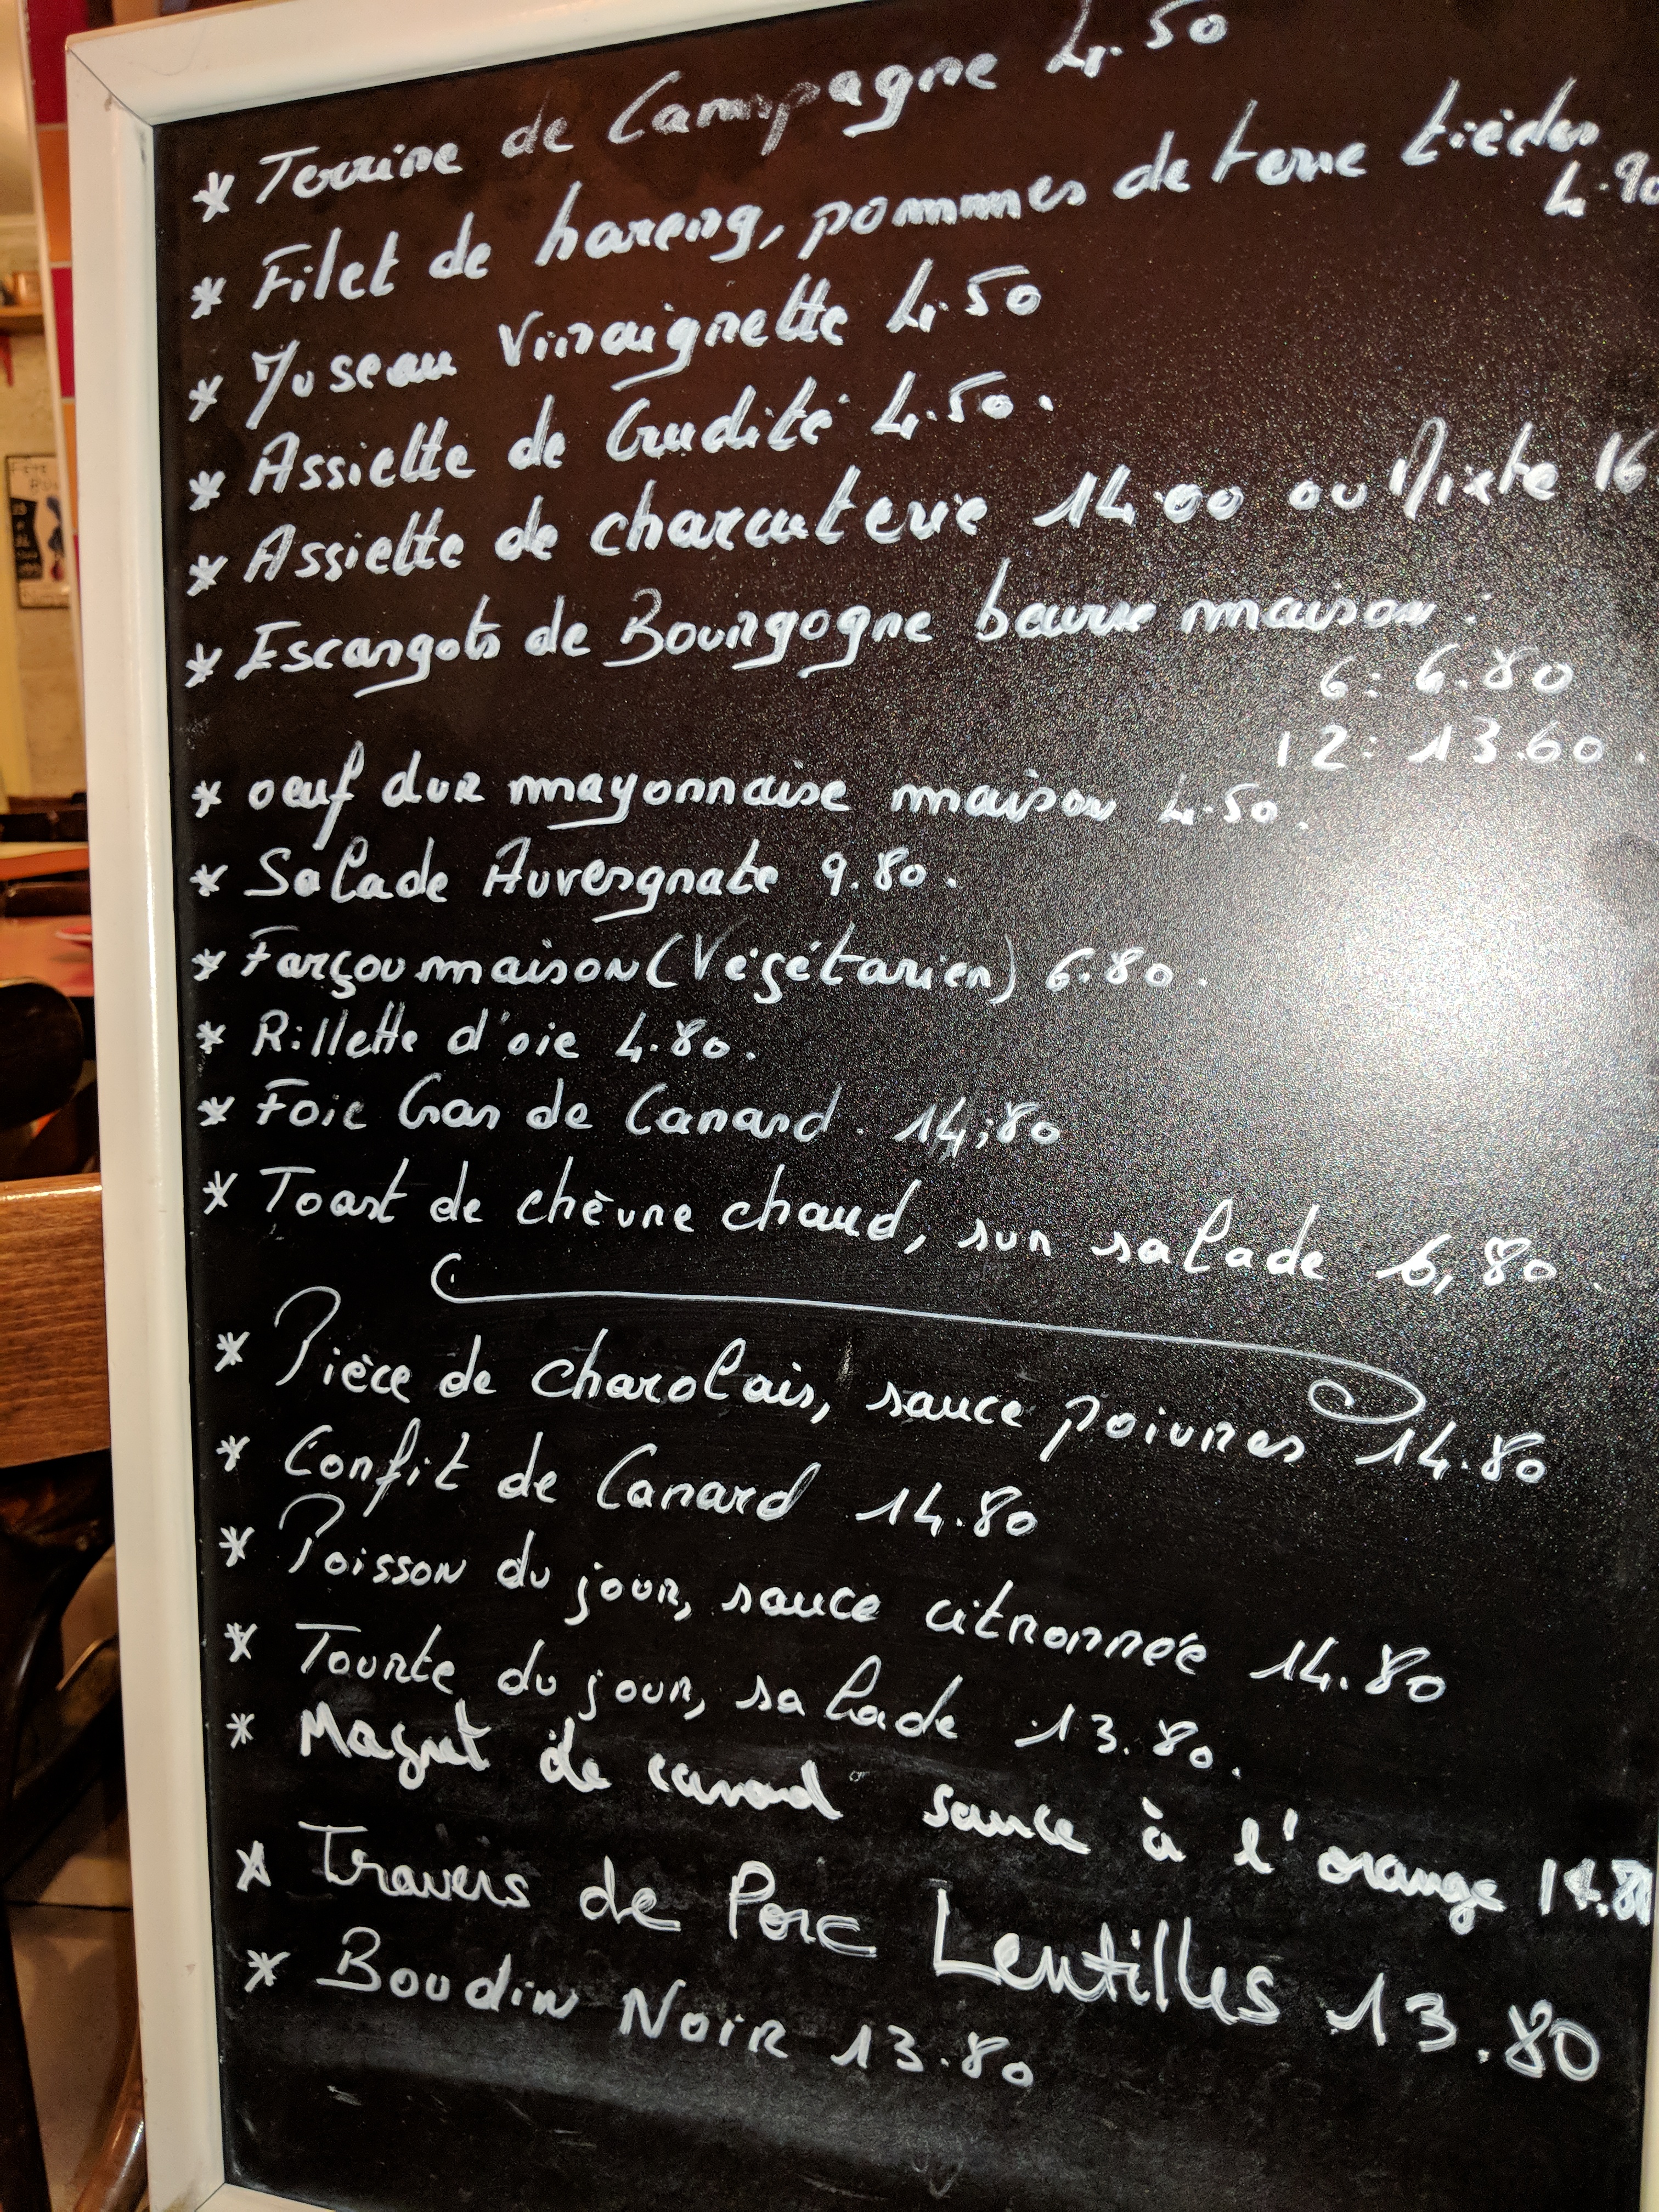 * Terrine de Campagne 4.50
* Filet de hareng, pommes de terre tièdes
4.90
* Museau Vinaigrette 4.50
* Assiette de Crudité 4.50.
* Assiette de charcuterie 14.00 ou Mixte 16
* Escargots de Bourgogne beurre maison :
6: 6.80
12: 13.60.
* oeuf dur mayonnaise maison 4.50.
* Salade Auvergnate 9.80.
* Farçou maison (Végétarien) 6.80.
* Rillette d'oie 4.80.
* Foie Gras de Canard. 14,80
* Toast de chèvre chaud, sur salade 6,80.
* Pièce de charolais, sauce poivres 14.80
* Confit de Canard 14.80
* Poisson du jour, sauce citronnée 14.80
* Tourte du jour, salade 13.80.
* Magret de canard sauce à l'orange
* Travers de Porc Lentilles 13.80
* Boudin Noir 13.80